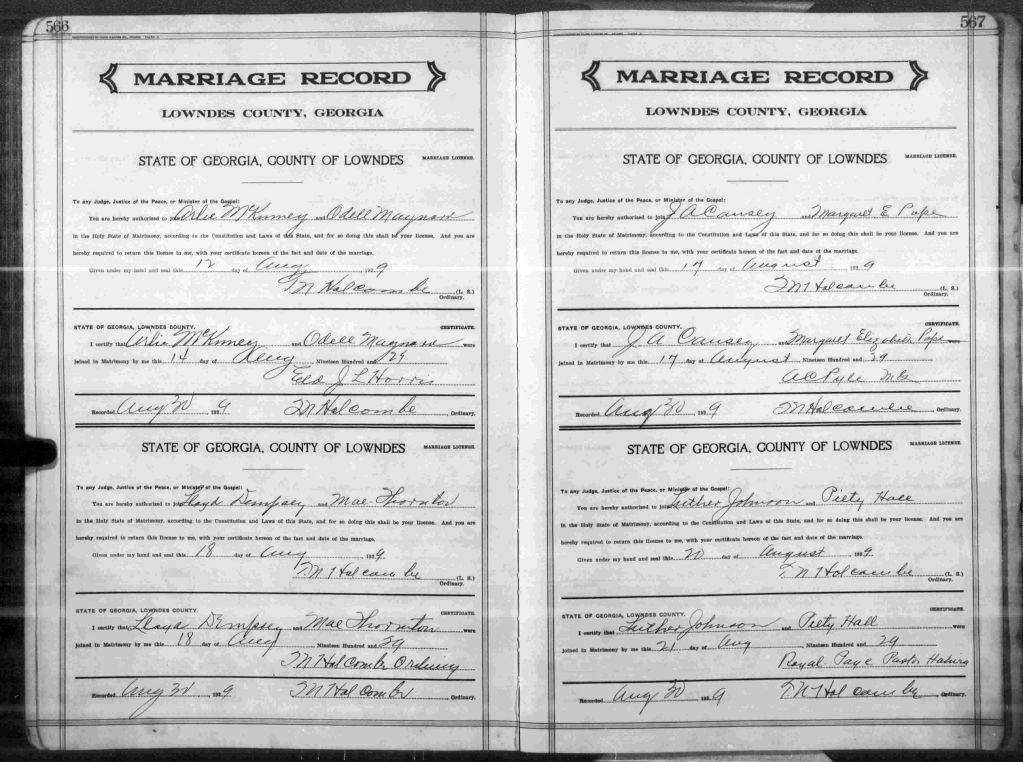 566
MARRIAGE RECORD
LOWNDES COUNTY, GEORGIA
STATE OF GEORGIA, COUNTY OF LOWNDES MARRIAGE LICENSE.
To any Judge, Justice of the Peace, or Minister of the Gospel:
You are hereby authorized to join Arlie McKinney and Odell Maynard
in the Holy State of Matrimony, according to the Constitution and Laws of this State, and for so doing this shall be your license. And you are
hereby required to return this license to me, with your certificate hereon of the fact and date of the marriage.
Given under my hand and seal this 12 day of Aug 1929
T.M Holcombe (L. S.)
Ordinary.
STATE OF GEORGIA, LOWNDES COUNTY. CERTIFICATE.
I certify that Arlie McKinney and Odell Maynard were
joined in Matrimony by me this 14 day of Aug Nineteen Hundred and 29
Eld J L Horris
Recorded Aug 30 1929 T.M Holcombe Ordinary.
STATE OF GEORGIA, COUNTY OF LOWNDES MARRIAGE LICENSE.
To any Judge, Justice of the Peace, or Minister of the Gospel:
You are hereby authorized to join Lloyd Dempsey and Mae Thornton
in the Holy State of Matrimony, according to the Constitution and Laws of this State, and for so doing this shall be your license. And you are
hereby required to return this license to me, with your certificate hereon of the fact and date of the marriage.
Given under my hand and seal this 18 day of Aug 1929
T.M Holcombe (L. S.)
Ordinary.
STATE OF GEORGIA, LOWNDES COUNTY. CERTIFICATE.
I certify that Lloyd Dempsey and Mae Thornton were
joined in Matrimony by me this 18 day of Aug Nineteen Hundred and 29
T.M Holcombe Ordinary
Recorded Aug 30 1929 T.M Holcombe Ordinary.
567
MARRIAGE RECORD
LOWNDES COUNTY, GEORGIA
STATE OF GEORGIA, COUNTY OF LOWNDES MARRIAGE LICENSE.
To any Judge, Justice of the Peace, or Minister of the Gospel:
You are hereby authorized to join J A Causey and Margaret E Pope
in the Holy State of Matrimony, according to the Constitution and Laws of this State, and for so doing this shall be your license. And you are
hereby required to return this license to me, with your certificate hereon of the fact and date of the marriage.
Given under my hand and seal this 17 day of August 1929
T.M Holcombe (L. S.)
Ordinary.
STATE OF GEORGIA, LOWNDES COUNTY. CERTIFICATE.
I certify that J. A Causey and Margaret Elizabeth Pope were
joined in Matrimony by me this 17 day of August Nineteen Hundred and 29
A C Pyle M G
Recorded Aug 30 1929 T.M Holcombe Ordinary.
STATE OF GEORGIA, COUNTY OF LOWNDES MARRIAGE LICENSE.
To any Judge, Justice of the Peace, or Minister of the Gospel:
You are hereby authorized to join Luther Johnson and Piety Hall
in the Holy State of Matrimony, according to the Constitution and Laws of this State, and for so doing this shall be your license. And you are
hereby required to return this license to me, with your certificate hereon of the fact and date of the marriage.
Given under my hand and seal this 20 day of August 1929
T.M Holcombe (L. S.)
Ordinary.
STATE OF GEORGIA, LOWNDES COUNTY. CERTIFICATE.
I certify that Luther Johnson and Piety Hall were
joined in Matrimony by me this 21 day of Aug Nineteen Hundred and 29
Royal Page Pastor Hahira
Recorded Aug 30 1929 T.M Holcombe Ordinary.